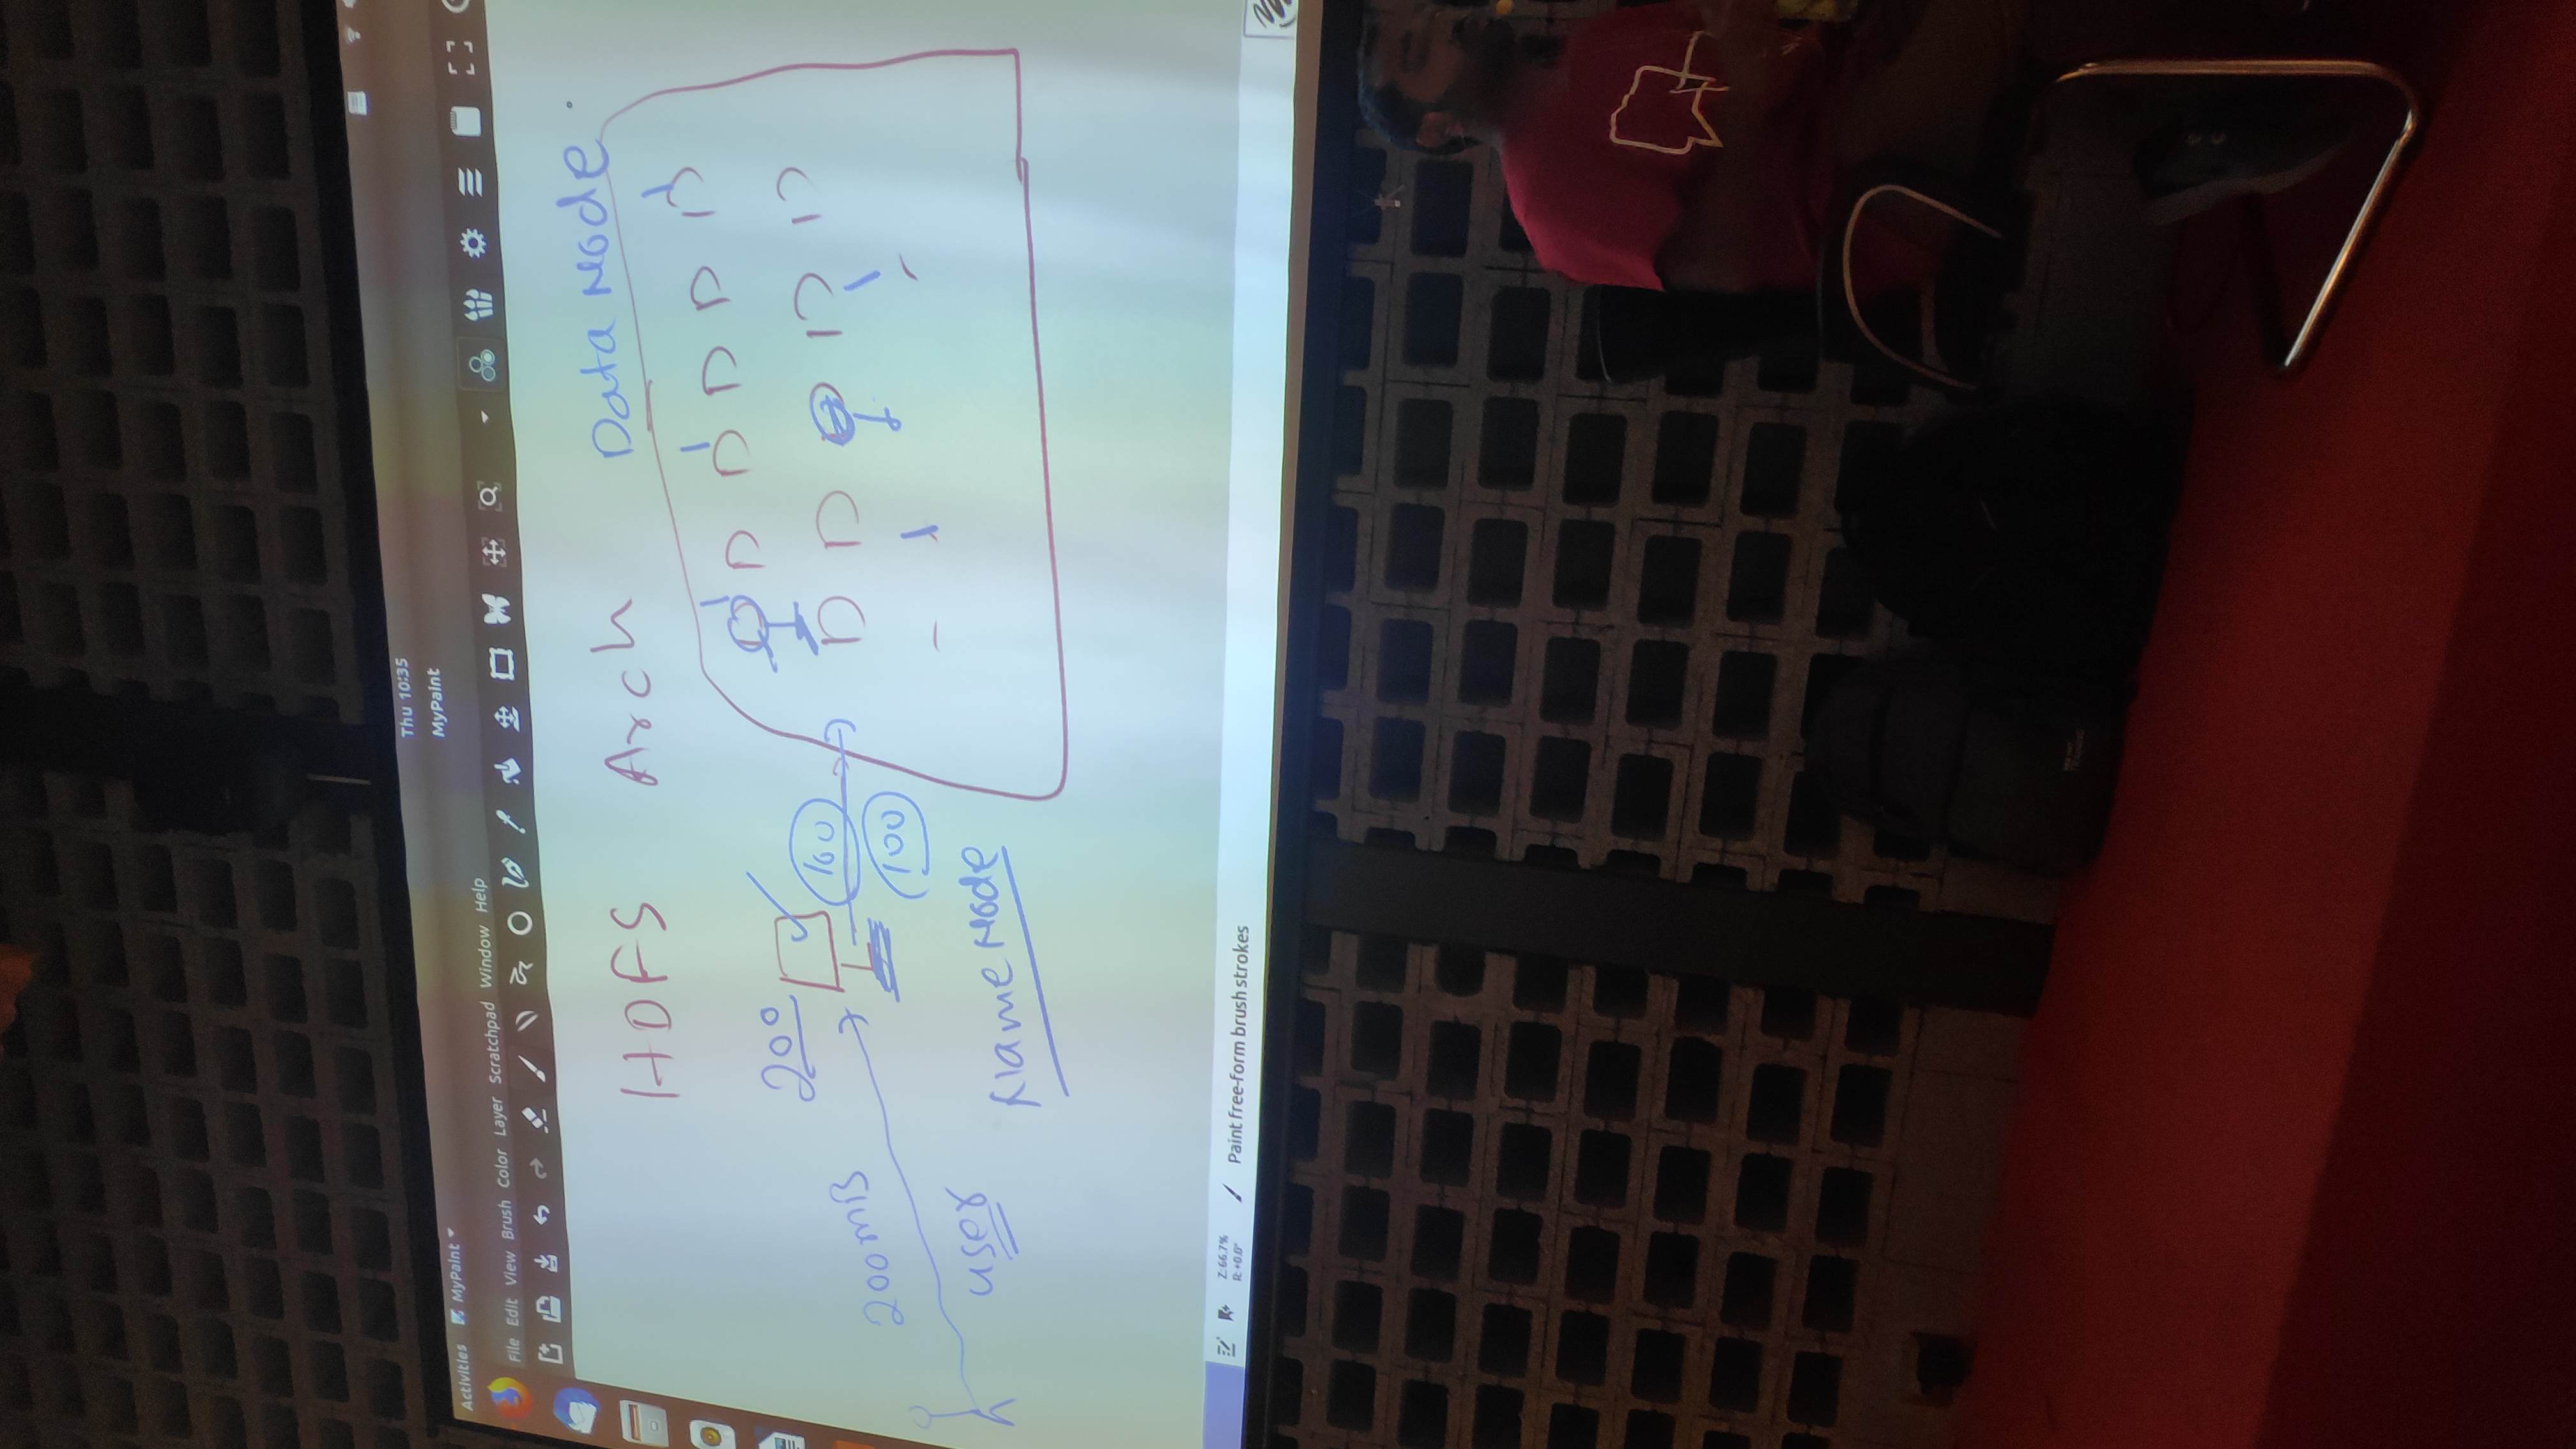 Thu 10:35
Activities MyPaint
MyPaint
File Edit View Brush Color Layer Scratchpad Window Help
HDFS Arch
Data Node
200
200mB
100
100
user
NameNode
D D D D D
D D D D
Z: 66.7%
R: +0.0°
Paint free-form brush strokes